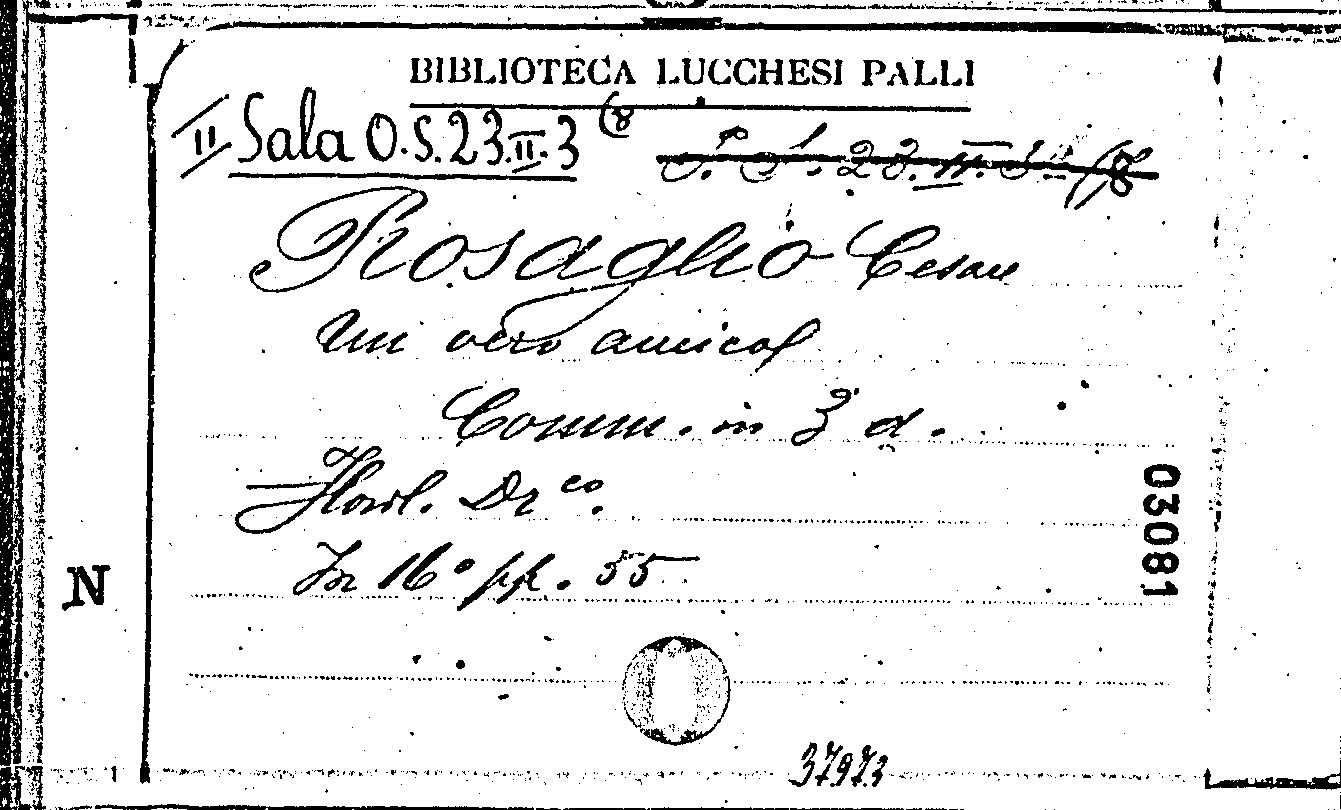 BIBLIOTECA LUCCHESI PALLI
II Sala O.S.23.II.3 (8
Rosaglio Cesare
Un vero amico!
Comm. in 3 a.
In 16° pp. 55
03081
N
37973